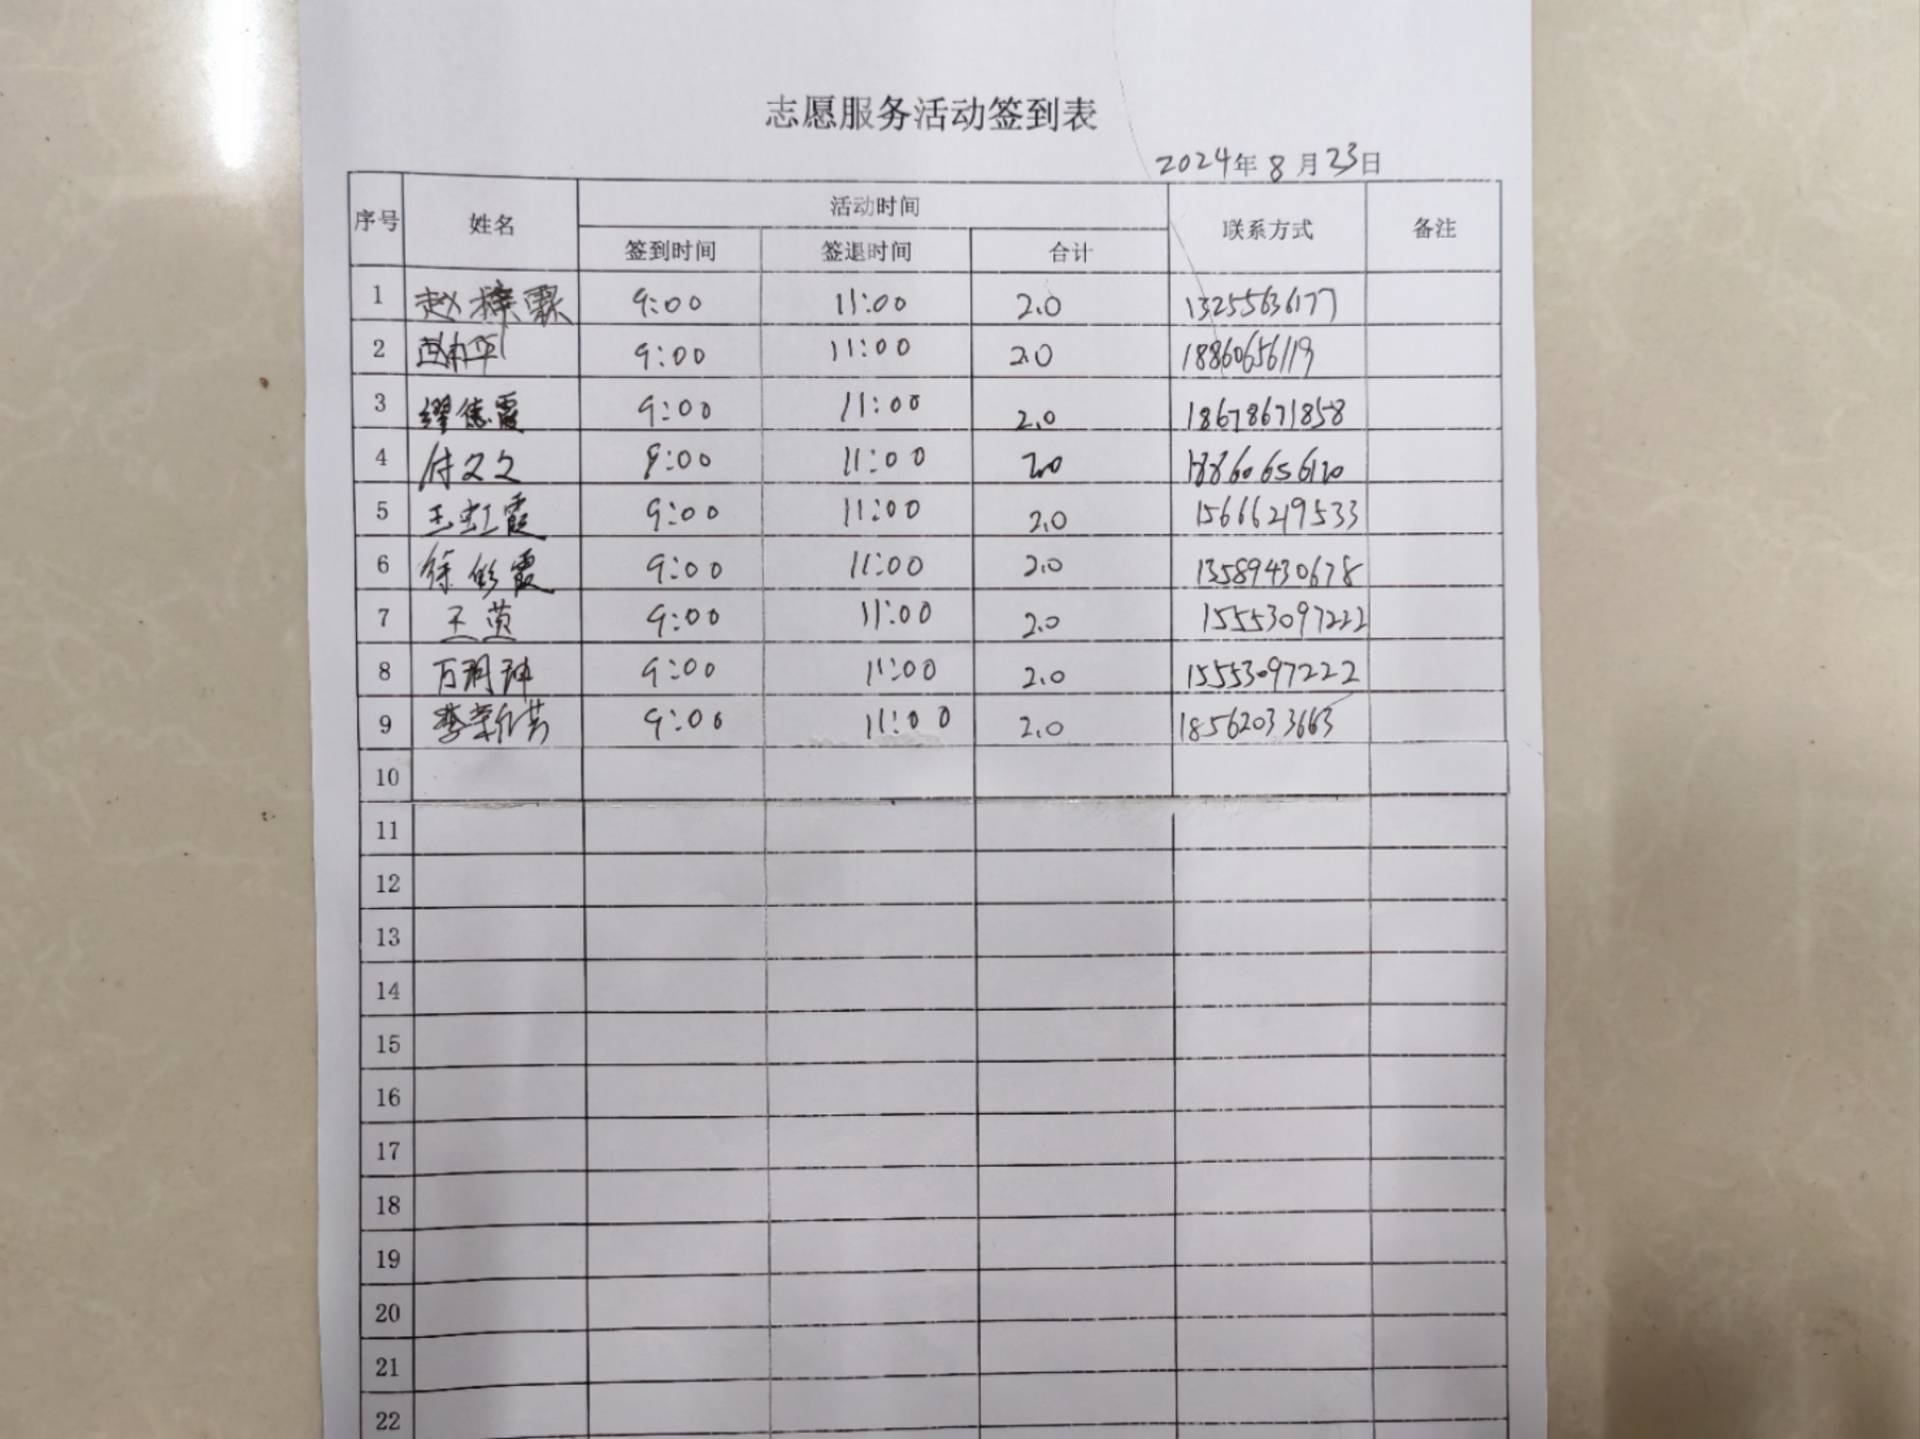 志愿服务活动签到表
2024年8月23日
序号 姓名 活动时间 联系方式 备注
签到时间 签退时间 合计
1 赵 霖 9:00 11:00 2.0 13255636177
2 9:00 11:00 2.0 18860656119
3 德霞 9:00 11:00 2.0 18678671858
4 付文文 9:00 11:00 2.0 18860656120
5 王虹霞 9:00 11:00 2.0 15666219533
6 徐彩霞 9:00 11:00 2.0 13589430678
7 王茵 9:00 11:00 2.0 15553097222
8 万 9:00 11:00 2.0 15553097222
9 李新芳 9:00 11:00 2.0 18562033663
10
11
12
13
14
15
16
17
18
19
20
21
22